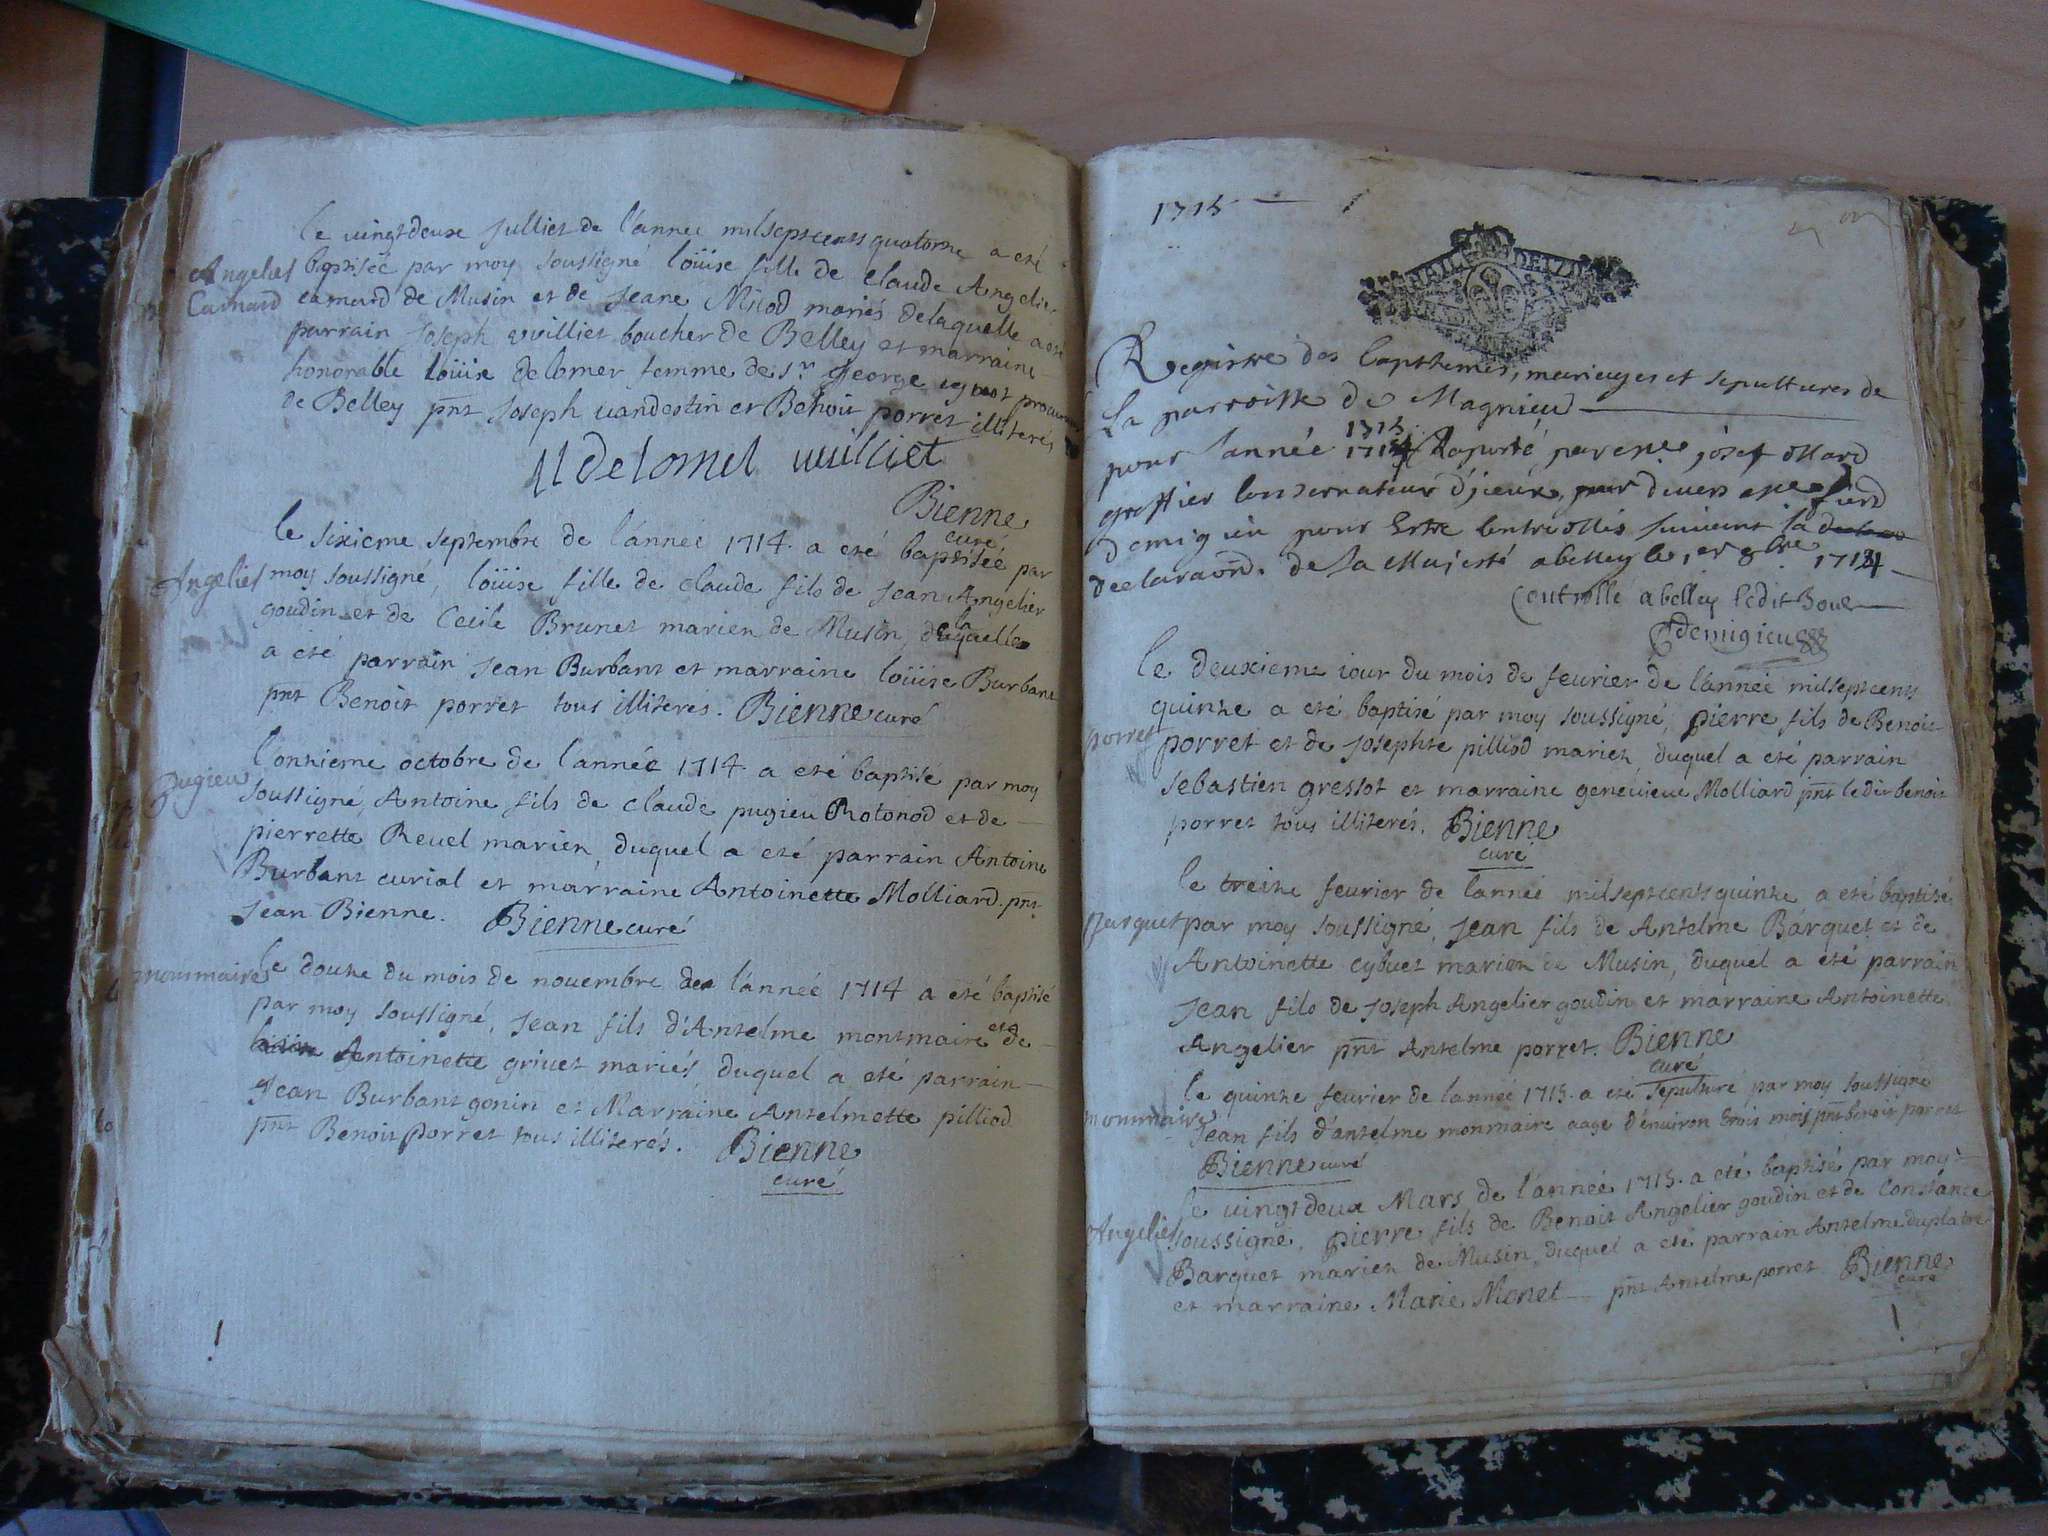 le vingtdeuxe Julliet de l'année milseptcents quatorze a eté
Angelier baptiseé par moy soussigné loüise fille de claude Angelier
Camard camard de Musin et de Jeane Milod mariés delaquelle a eté
parrain Joseph vuilliet boucher de Belley et marraine
honorable loüise delomer femme de sr. George
de Belley pnt Joseph vandestin et Benoit porret illiterés
delomel vuilliet
Bienne
curé
le sixieme septembre de l'année 1714. a eté baptiseé par
Angelier moy soussigné, loüise fille de claude fils de Jean Angelier
goudin et de Cecile Brunet mariez de Musin, de laquelle
a eté parrain Jean Burbant et marraine loüise Burbant
pnt Benoit porret tous illiterés. Bienne curé
l'onzieme octobre de l'année 1714. a eté baptisé par moy
pugieu soussigné, Antoine fils de claude pugieu Rotonod et de
pierrette Revel mariez, duquel a eté parrain Antoine
Burbant curial et marraine Antoinette Molliard. pnt
Jean Bienne. Bienne curé
monmaire le douze du mois de novembre de l'année 1714 a eté baptisé
par moy soussigné, Jean fils d'Antelme montmaire et de
Antoinette grivet mariés, duquel a eté parrain
Jean Burbant gonin et Marraine Antelmette pilliod
pnt Benoit porret tous illiterés. Bienne
curé
1715 1
Registre des bapthemes, mariages et sepultures de
la parroisse de Magnieu
1715
pour l'année 1714 Raporté par josef
greffier conservateur
demigieu pour Estre controllés suivant la
declaraon. de sa Majesté a belley le 1er 8bre 1714
Controllé a belley ledit Jour
demigieu
le deuxieme iour du mois de fevrier de l'année milseptcents
quinze a eté baptisé par moy soussigné, pierre fils de Benoit
porret porret et de Josephte pilliod mariez, duquel a eté parrain
sebastien gressot et marraine genevieve Molliard pnt ledit benoit
porret tous illiterés. Bienne
curé
le treize fevrier de l'année milseptcents quinze a eté baptisé
Barquet par moy soussigné, Jean fils de Antelme Barquet et de
Antoinette cybuet mariez de Musin, duquel a eté parrain
Jean fils de Joseph Angelier goudin et marraine Antoinette
Angelier pnt Antelme porret. Bienne
curé
le quinze fevrier de l'année 1715. a eté sepulturé par moy soussigné
monmaire Jean fils d'antelme monmaire aagé d'environ trois mois pnt benoit porret
Bienne curé
le vingtdeux Mars de l'année 1715. a eté baptisé par moy
Angelier soussigné, pierre fils de Benoit Angelier goudin et de Constance
Barquet mariez de Musin, duquel a eté parrain Antelme duplatre
et marraine Marie Monet pnt Antelme porret Bienne
curé